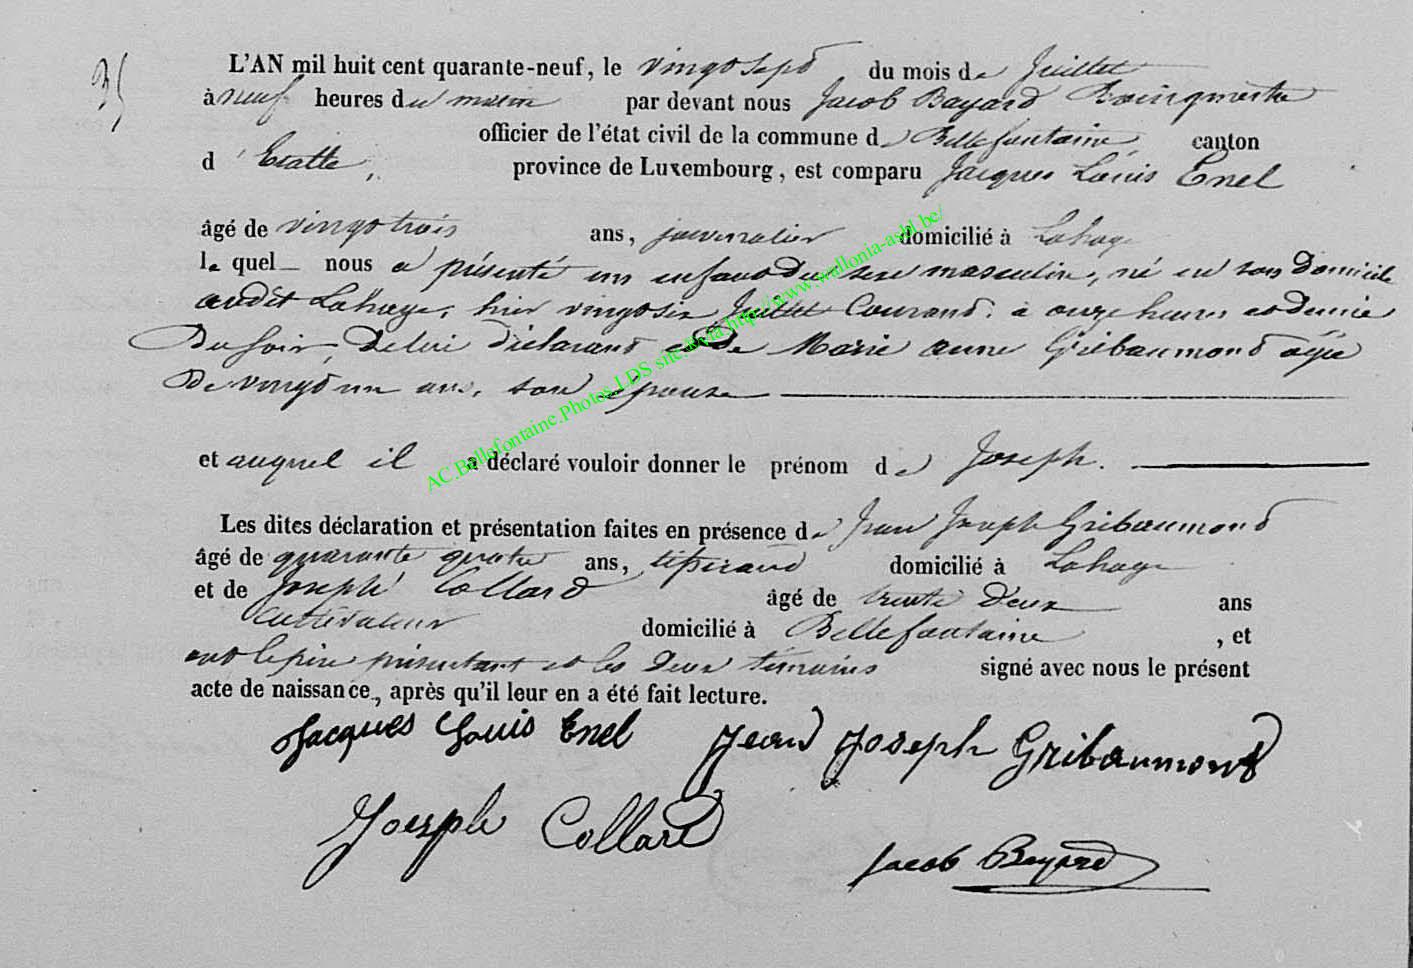 35
L'AN mil huit cent quarante-neuf, le vingt sept du mois de Juillet
à neuf heures du matin par devant nous Jacob Bayard Bourgmestre
officier de l'état civil de la commune de Bellefontaine, canton
d'Etalle, province de Luxembourg, est comparu Jacques Louis Enel
âgé de vingt trois ans, journalier domicilié à Lahage
lequel nous a présenté un enfant du sexe masculin, né en son domicile
audit Lahage, hier vingt six Juillet Courant, à onze heures et demie
Du soir, De lui déclarant et De Marie anne Gribaumont agée
De vingt un ans, son épouse
et auquel il a déclaré vouloir donner le prénom de Joseph.
Les dites déclaration et présentation faites en présence de Jean Joseph Gribaumont
âgé de quarante quatre ans, tisserand domicilié à Lahage
et de Joseph Collard âgé de trente Deux ans
cultivateur domicilié à Bellefontaine, et
ont le père présentant et les Deux témoins signé avec nous le présent
acte de naissance, après qu'il leur en a été fait lecture.
Jacques Louis Enel Jean Joseph Gribaumont
Joesph Collard
Jacob Bayard
AC.Bellefontaine.Photos.LDS site http://www.wallonia-asbl.be/